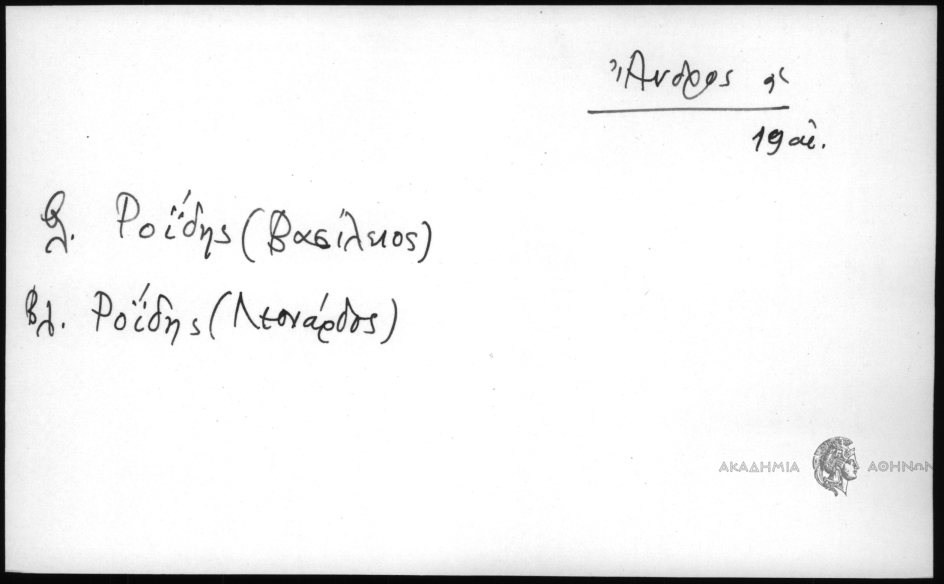 Ἄνδρος α'
19 αἰ.
Βλ. Ροΐδης (Βασίλειος)
Βλ. Ροΐδης (Λεονάρδος)
ΑΚΑΔΗΜΙΑ ΑΘΗΝΩΝ